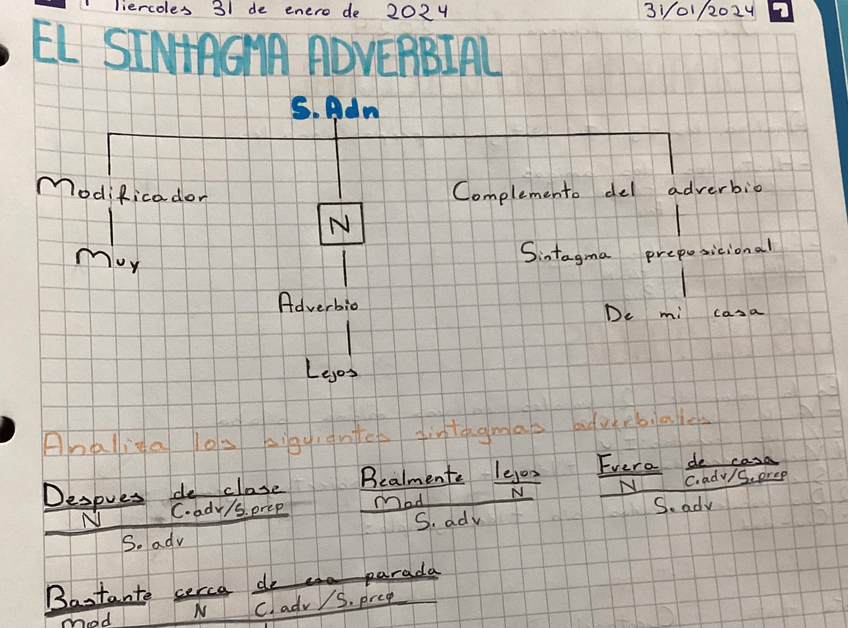 Miercoles 31 de enero de 2024 31/01/2024
EL SINTAGMA ADVERBIAL
S. Adn
Modificador N Complemento del adverbio
Muy Adverbio Sintagma preposicional
Lejos De mi casa
Analiza los siguientes sintagmas adverbiales
Despues de clase Realmente lejos Fuera de casa
N C.adv/S.prep Mod N N C.adv/S.prep
S. adv S. adv S. adv
Bastante cerca de esa parada
Mod N C.adv/S.prep